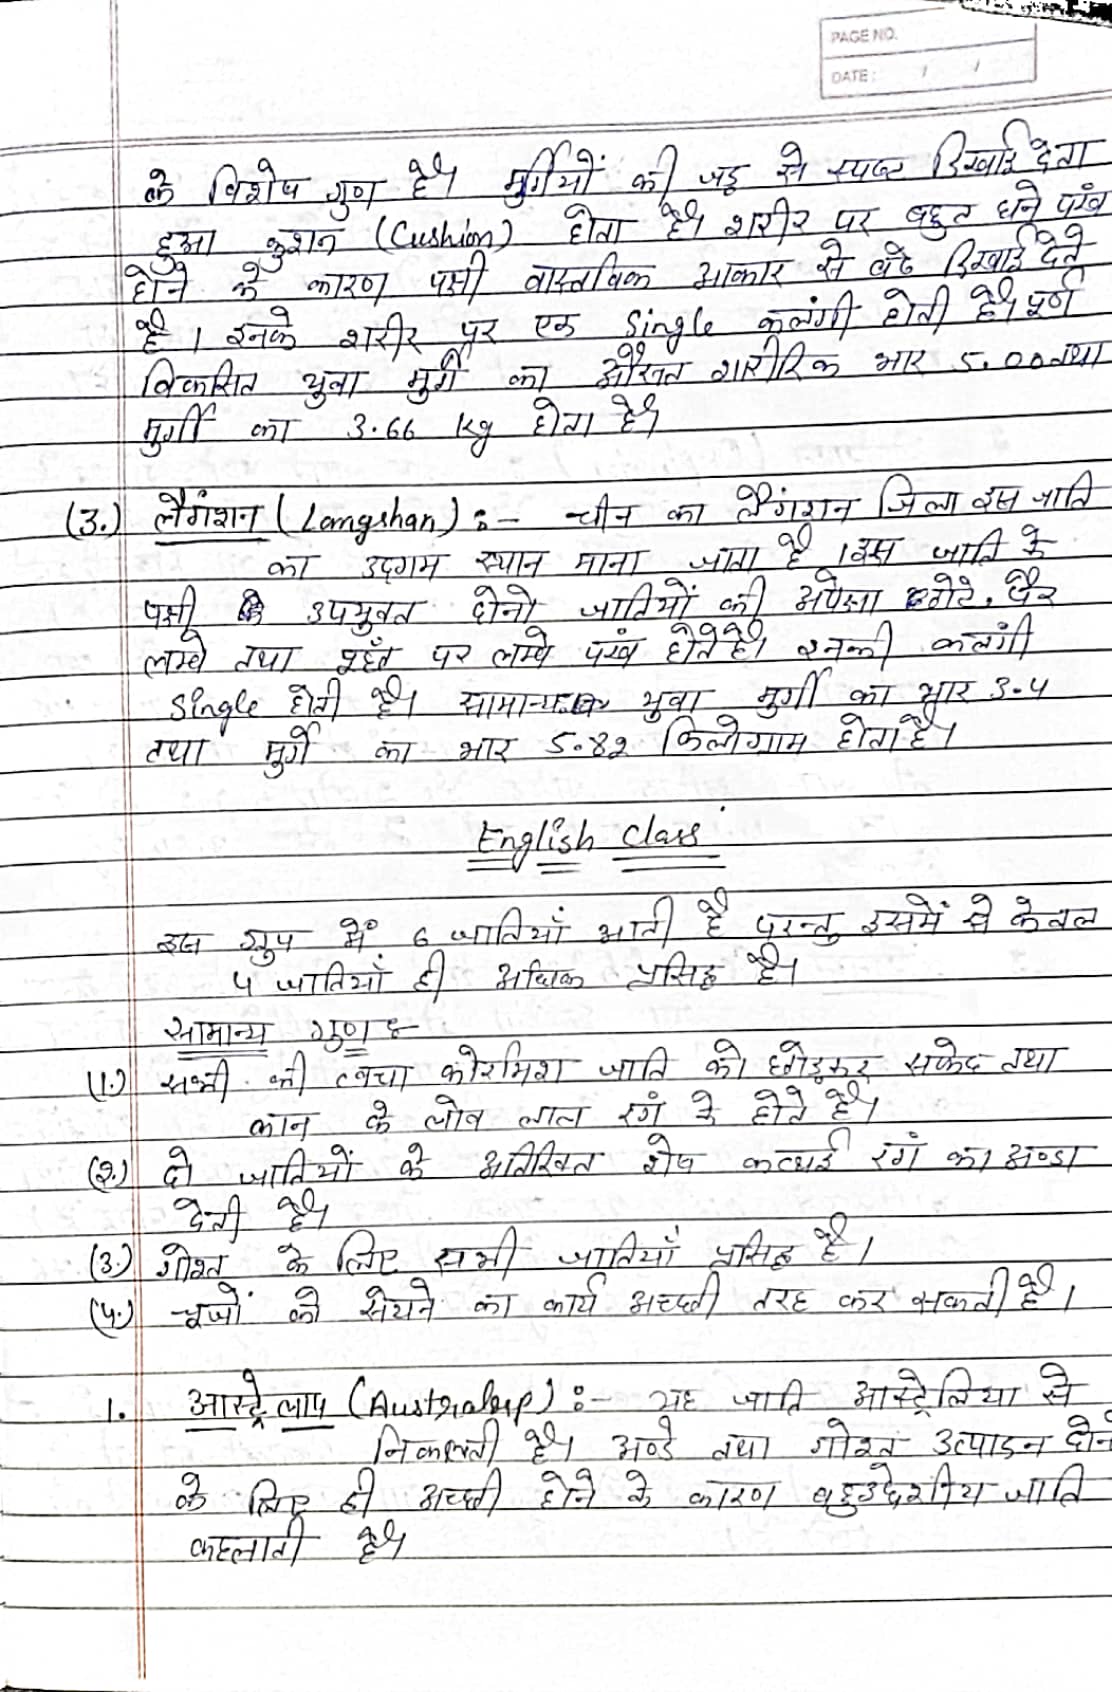 PAGE NO.
DATE: / /
के विशेष गुण है। मुर्गीयों की जड़ से स्पष्ट दिखाई देता
हुआ कुशन (Cushion) होता है। शरीर पर बहुत घने पंख
होने के कारण पक्षी वास्तविक आकार से बडे दिखाई देते
है। इनके शरीर पर एक Single कलंगी होती है। पूर्ण
विकसित युवा मुर्गे का औसत शारीरिक भार 5.00 तथा
मुर्गी का 3.66 kg होता है।
(3.) लैगंशन (Langshan) :- चीन का लैगंशन जिला इस जाति
का उदगम स्थान माना जाता है। इस जाति के
पक्षी उपयुक्त दोनो जातियों की अपेक्षा छोटे, पैर
लम्बे तथा पूछँ पर लम्बे पंख होते है। इनकी कलंगी
Single होती है। सामान्यतः युवा मुर्गी का भार 3.4
तथा मुर्गे का भार 5.82 किलोग्राम होता है।
English Class
इस ग्रुप में 6 जातियाँ आती है परन्तु इसमें से केवल
4 जातियाँ ही अधिक प्रसिद्ध है।
सामान्य गुण :-
(1.) सभी की त्वचा कोरमिश जाति को छोड़कर सफेद तथा
कान के लोव लाल रंग के होते है।
(2.) दो जातियों के अतिरिक्त शेष कत्थई रंग का अण्डा
देती है।
(3.) गोश्त के लिए सभी जातियाँ प्रसिद्ध है।
(4.) चूजों को सेयने का कार्य अच्छी तरह कर सकती है।
1. आस्ट्रेलाप (Australop) :- यह जाति आस्ट्रेलिया से
निकलती है। अण्डे तथा गोश्त उत्पादन दोनो
के लिए ही अच्छी होने के कारण बहुउद्देशीय जाति
कहलाती है।